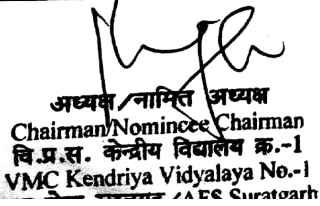 अध्यक्ष/नामित अध्यक्ष
Chairman/Nomincee Chairman
वि.प्र.स. केन्द्रीय विद्यालय क्र.-1
VMC Kendriya Vidyalaya No.-1
/AFS Suratgarh